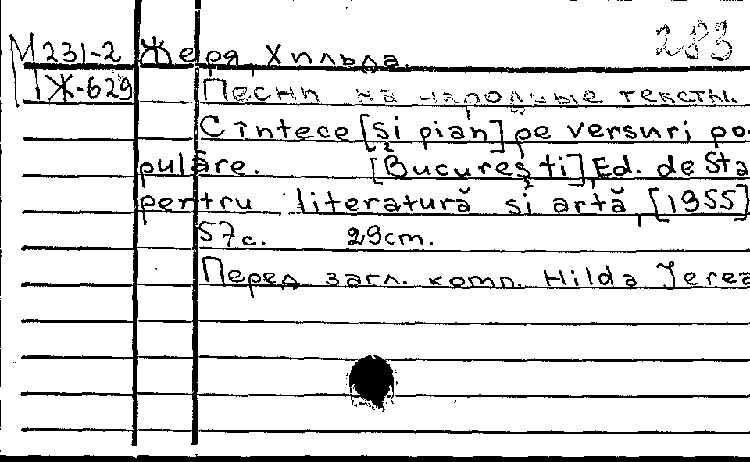 283
М231-2 Жеря, Хильда.
1Ж-629 Песни на народные тексты.
Cîntece [și pian] pe versuri po-
pulare. [București], Ed. de Sta
pentru literatură și artă, [1955]
57с. 29cm.
Перед загл. комп. Hilda Jerea